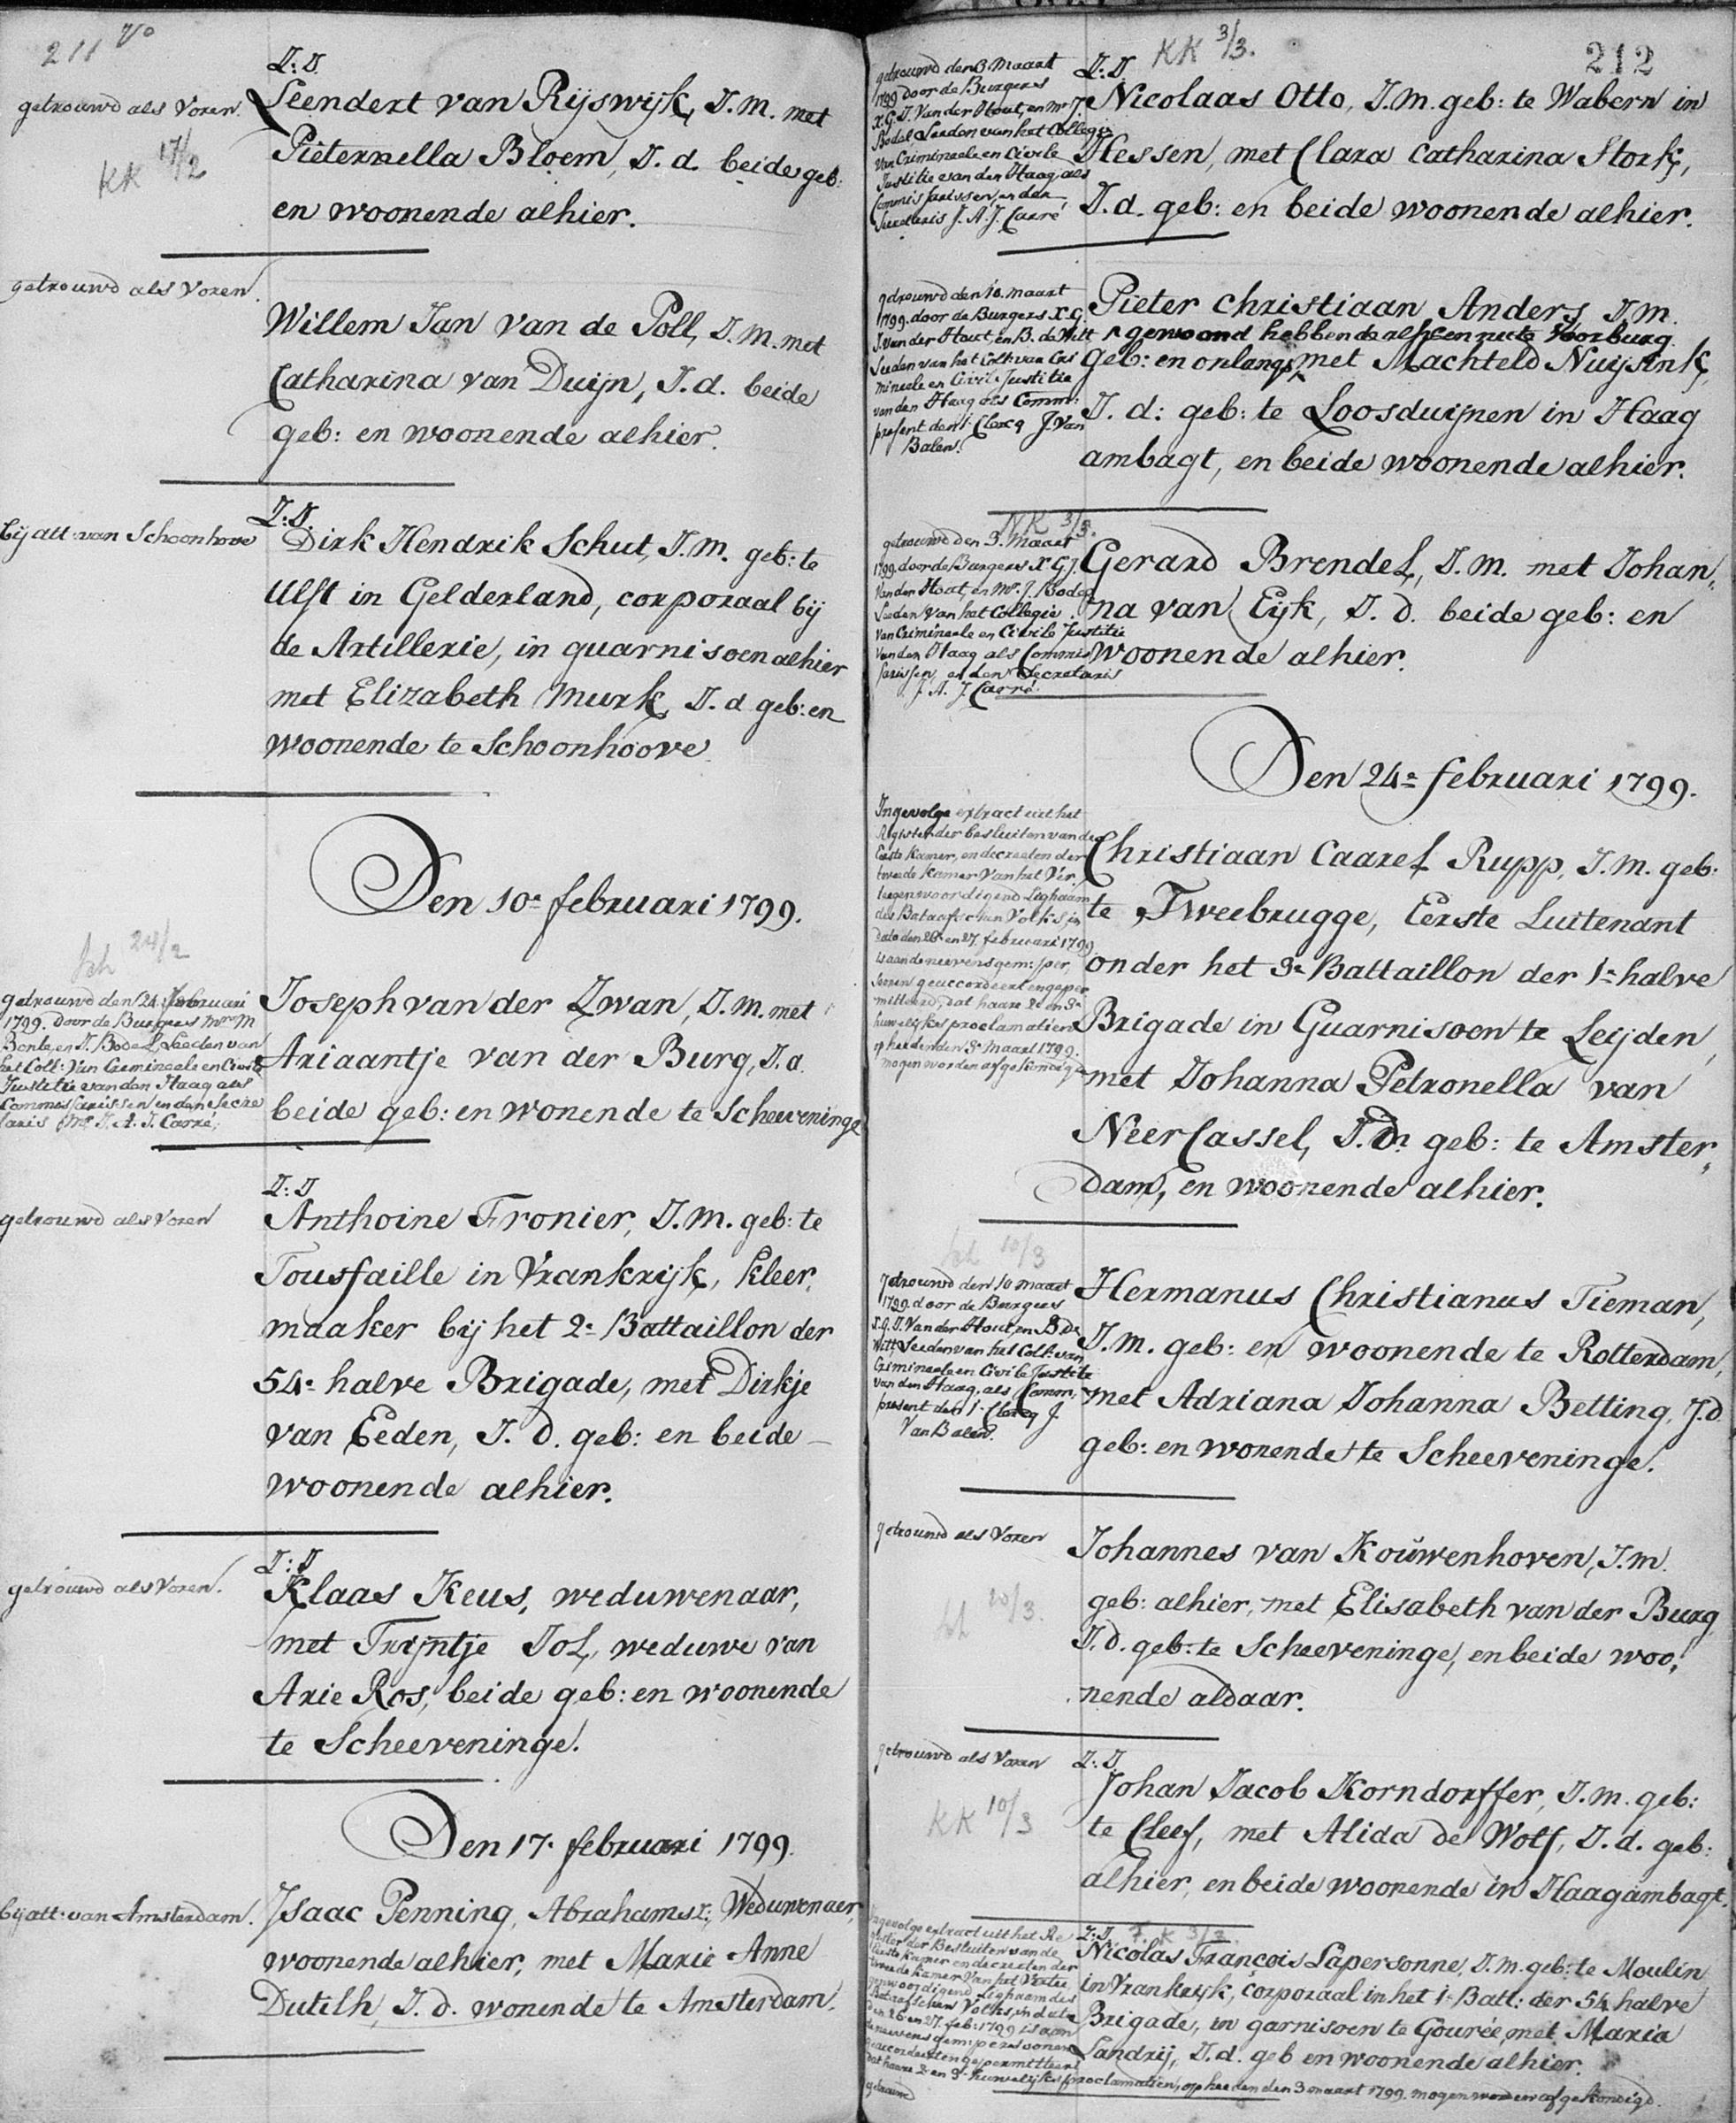 211 vo
getrouwd als Voren.
KK 17/2
I: D
Leendert van Rijswijk, J. M. met
Pieternella Bloem, J. d. beide geb:
en woonende alhier.
getrouwd als Voren.
Willem Jan van de Poll, J. M. met
Catharina van Duijn, J. d. beide
geb: en woonende alhier.
bij att: van Schoonhove
I: D.
Dirk Hendrik Schut, J. M. geb: te
Ulft in Gelderland, corporaal bij
de Artillerie, in guarnisoen alhier
met Elizabeth Murk, J. d geb: en
woonende te Schoonhoove.
Den 10e februari 1799.
Sch 24/2
getrouwd den 24. februari
1799. door de Burgers Mr M
Bonte, en J. Bodel Leeden van
het Coll: Van Crimineele en Civile
Justitie van den Haag als
Commissarissen en den Secre
taris Mr J. A. J. Carré,
Joseph van der Zwan, J. M. met
Ariaantje van der Burg, J. d.
beide geb: en wonende te Scheeveninge
getrouwd als Voren
I: D
Anthoine Fronier, J. M. geb: te
Tousfaille in Vrankrijk, kleer,
maaker bij het 2e Battaillon der
54e halve Brigade, met Dirkje
van Eeden, J. D. geb: en beide
woonende alhier.
getrouwd als Voren.
I: D
Klaas Keus, weduwenaar,
met Trijntje Jol, weduwe van
Arie Ros, beide geb: en woonende
te Scheeveninge.
Den 17e februari 1799.
bij att: van Amsterdam.
Isaac Penning, Abrahamsz: Weduwenaer,
woonende alhier, met Marie Anne
Dutilh, J. d. wonende te Amsterdam.
KK 3/3.
212
getrouwd den 3. Maart
1799 door de Burgers
X. G. J. Van der Hout, en Mr J.
Bodel, Leeden van het Collegie
van Crimineele en Civile
Justitie van den Haag, als
Commissarissen, en den
Secretaris J. A. J. Carré
I: D
Nicolaas Otto, J. M. geb: te Wabern in
Hessen, met Clara Catharina Stork,
J. d. geb: en beide woonende alhier.
getrouwd den 10. maart
1799. door de Burgers X. G.
J. van der Hout, en B. de Witt
Leeden van het Coll: van Cri
mineele en Civile Justitie
van den Haag als Comm:
present den 1e Clercq J. Van
Balen.
Pieter Christiaan Anders, J. M.
gewoond hebbende alhier en nu te Voorburg.
geb: en onlangs met Machteld Nuijsink,
J. d: geb: te Loosduijnen in Haag
ambagt, en beide woonende alhier.
NK 3/3.
getrouwd den 3. Maart
1799. door de Burgers X. G. J.
Van der Hout, en Mr. J. Bodel
Leeden van het Collegie
van Crimineele en Civile Justitie
van den Haag als Commis
sarissen, en den Secretaris
J. A. J. Carré
Gerard Brendel, J. M. met Johan,
na van Eijk, J. d. beide geb: en
woonende alhier.
Den 24e februari 1799.
Ingevolge extract uit het
Register der besluiten van de
Eerste kamer, en decreeten der
tweede kamer Van het Ver,
teegenwoordigend Lighaam
des Bataafschen Volks, in
Dato den 26 en 27. februari 1799
is aan de neevensgem: per,
soonen geaccordeert en geper
mitteerd, dat haare 2e en 3e
huwelijks proclamatien
op heeden den 3e Maart 1799.
mogen worden afgekondigt
Christiaan Caarel Rupp, J. M. geb:
te Tweebrugge, Eerste Luitenant
onder het 3e Battaillon der 1e halve
Brigade in Guarnisoen te Leijden,
met Johanna Petronella van
Neercassel, J. D. geb: te Amster,
dam, en woonende alhier.
Sch 10/3
getrouwd den 10 maart
1799. door de Burgers
X. G. J. Van der Hout, en B. de
Witt, Leeden van het Coll: van
Crimineele en Civile Justitie
van den Haag, als Comm,
present den 1e Clercq J.
Van Balen.
Hermanus Christianus Tieman,
J. M. geb: en woonende te Rotterdam,
met Adriana Johanna Betting, J. d.
geb: en wonende te Scheeveninge.
getrouwd als Voren
10/3.
Johannes van Kouwenhoven, J. m.
geb: alhier, met Elisabeth van der Burg
J. d. geb: te Scheeveninge, en beide woo,
nende aldaar.
getrouwd als Voren
KK 10/3
I: D
Johan Jacob Korndorffer, J. m. geb:
te Cleef, met Alida de Wolf, J. d. geb:
alhier, en beide woonende in Haagambagt.
Ingevolge extract uit het Re
gister der Besluiten van de
Eerste Kamer en decreeten der
tweede Kamer Van het Vertee
genwoordigend Lighaam des
Bataafschen Volks, in dato
den 26 en 27. feb: 1799 is aan
de neevensgem: persoonen
geaccordeert en gepermitteert
dat haare 2e en 3e huwelijks proclamatien, op heeden den 3 maart 1799. mogen worden afgekondigd.
getrouwd
I: D F. K 3/3.
Nicolas François Lapersonne, J. m. geb: te Moulin
in Vrankrijk, corporaal in het 1e Batt: der 54 halve
Brigade, in garnisoen te Gourée, met Maria
Landrij, J. d. geb en woonende alhier.